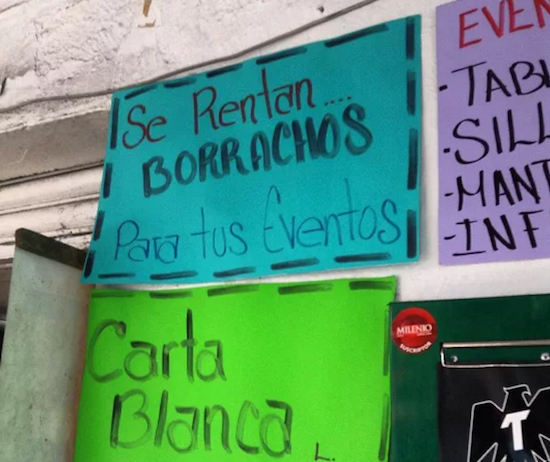 Se Rentan....
BORRACHOS
Para tus Eventos
Carta
Blanca
L.
EVEN
-TABL
-SILL
-MANT
-INF
MILENIO
SUSCRIPTOR
T